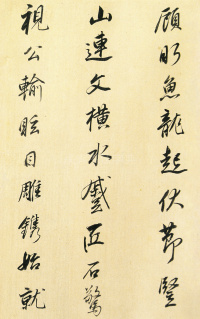 顧盼魚龍起伏節豎
山連文橫水蹙匠石驚
視公輸眩目雕鐫始就